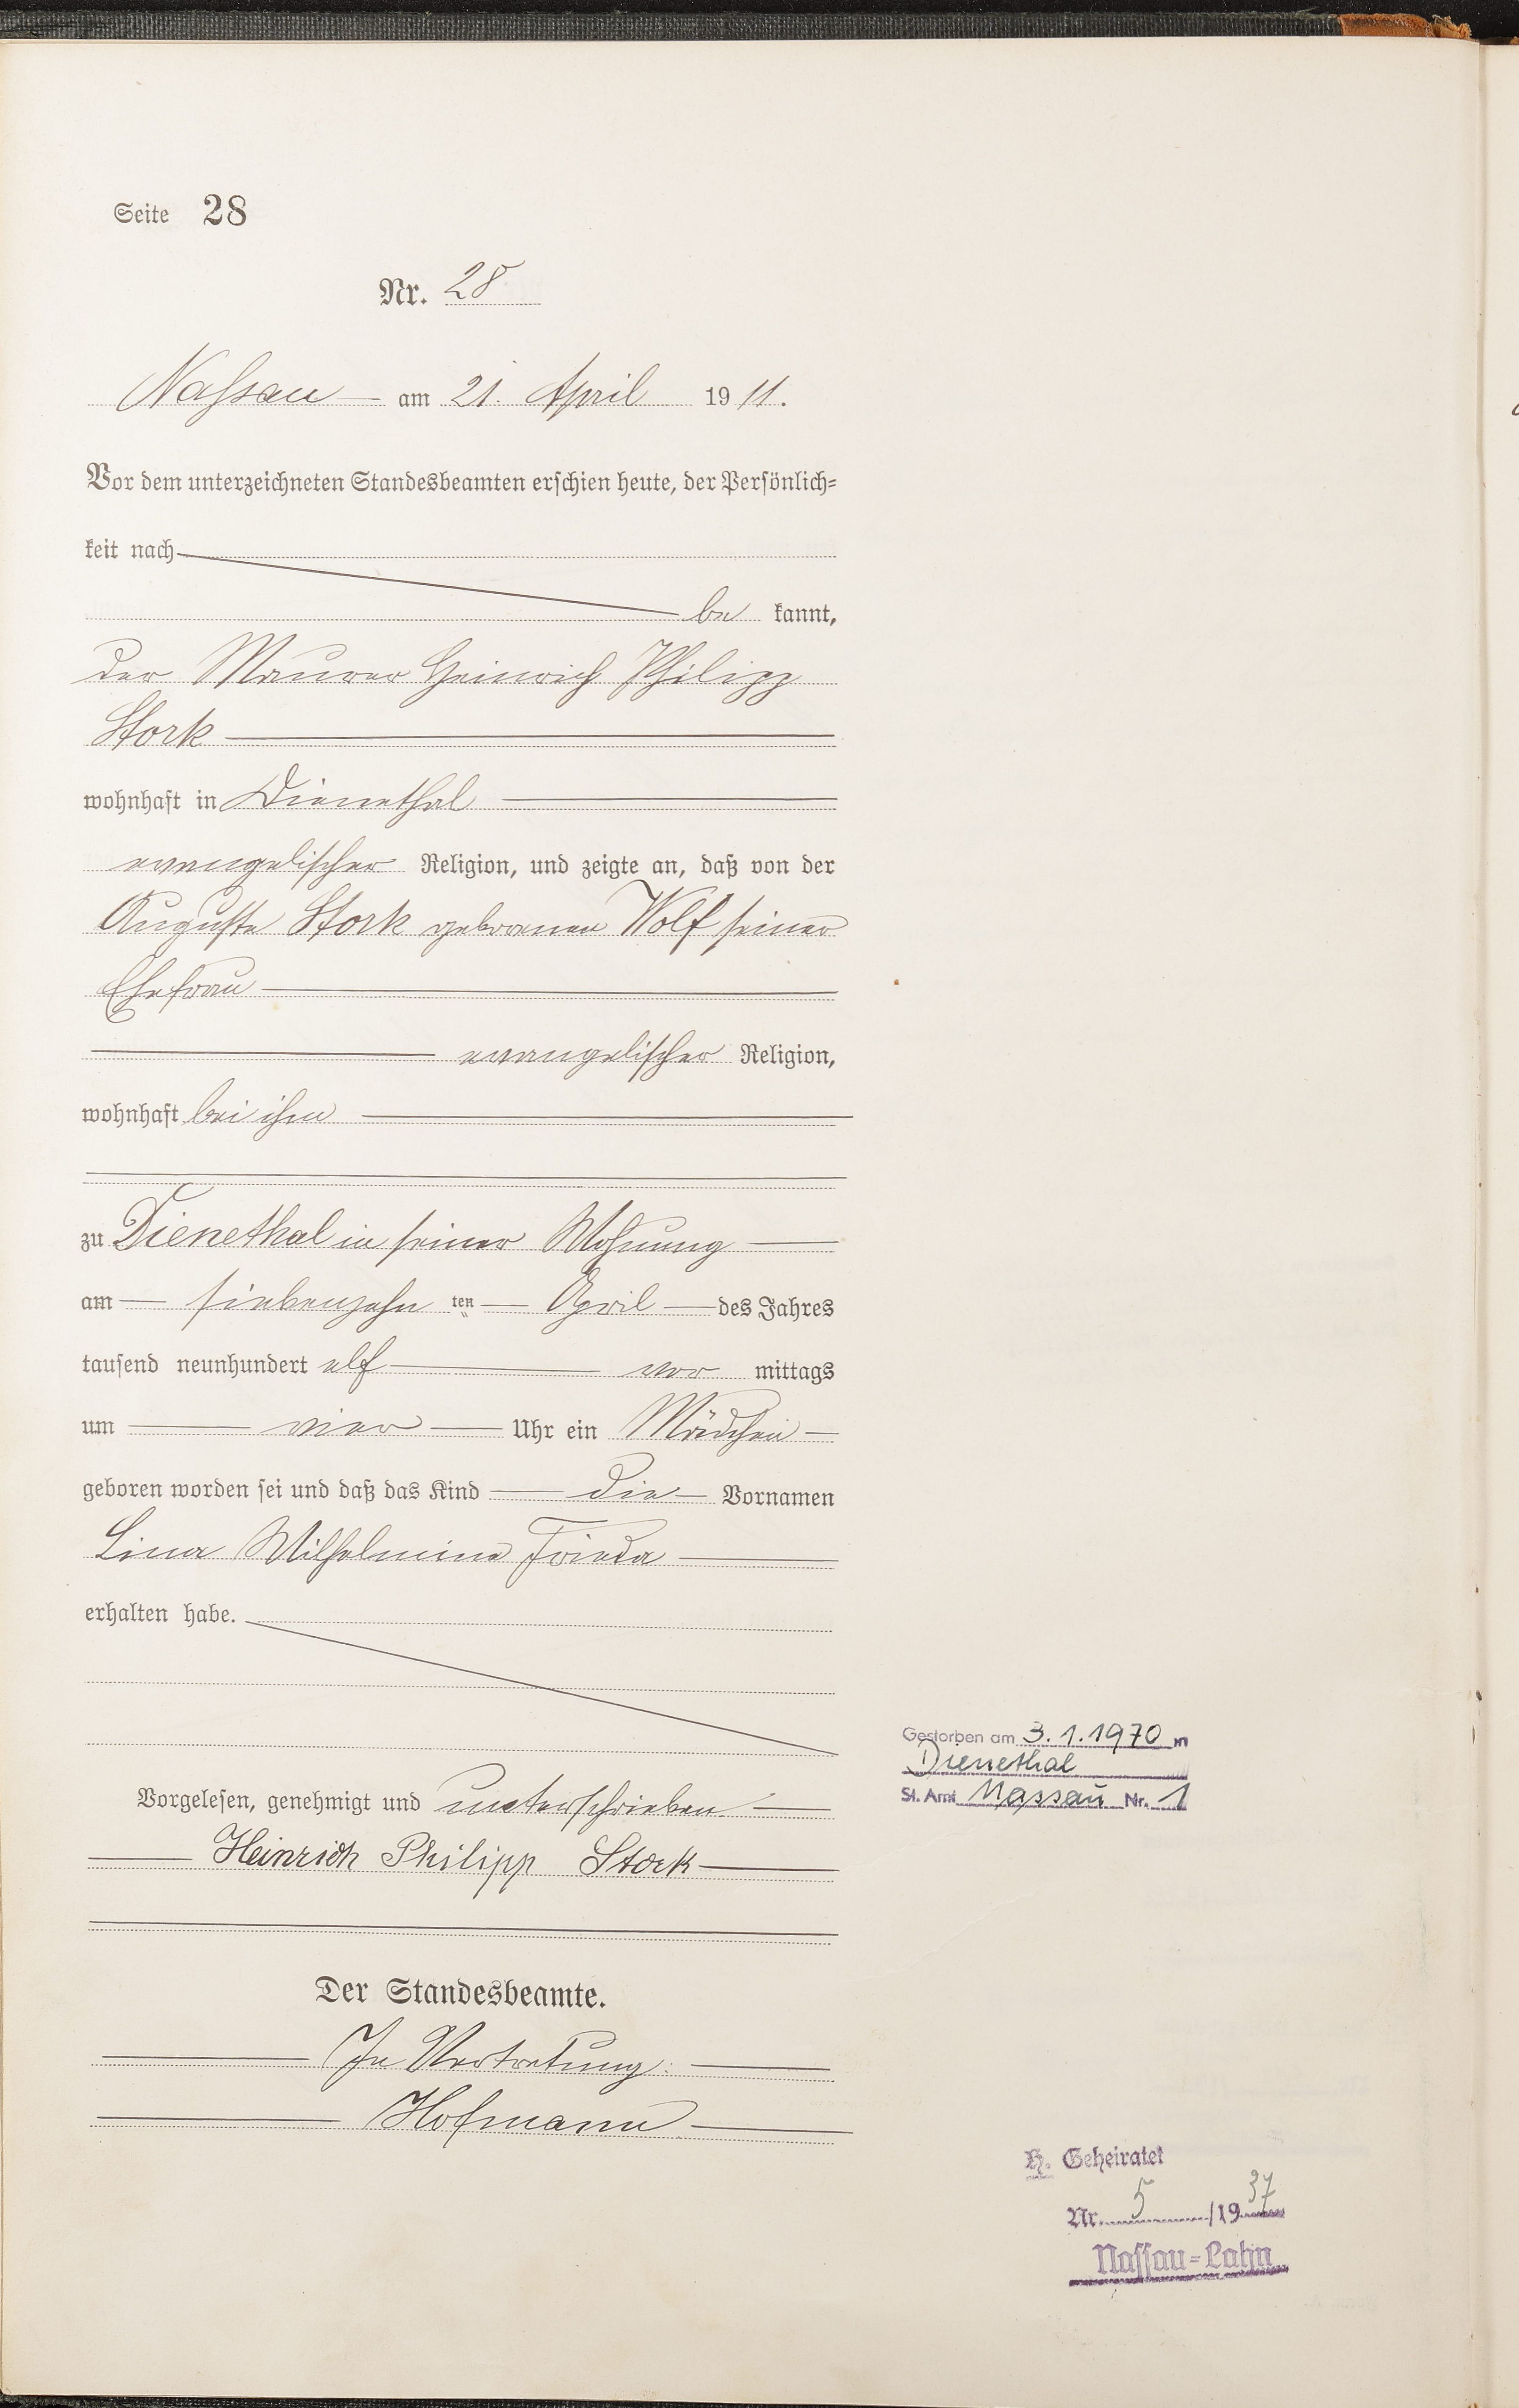 Seite 28
Nr. 28
Nassau am 21. April 1911.
Vor dem unterzeichneten Standesbeamten erschien heute, der Persönlich=
keit nach
be kannt,
der Maurer Heinrich Philipp
Stork
wohnhaft in Dienethal
evangelischer Religion, und zeigte an, daß von der
Auguste Stork geborenen Wolf seiner
Ehefrau
evangelischer Religion,
wohnhaft bei ihm
zu Dienethal in seiner Wohnung
am siebenzehn ten April des Jahres
tausend neunhundert elf vor mittags
um vier Uhr ein Mädchen
geboren worden sei und daß das Kind die Vornamen
Lina Wilhelmine Frieda
erhalten habe.
Vorgelesen, genehmigt und unterschrieben
Heinrich Philipp Stork
Der Standesbeamte.
In Vertretung.
Hofmann
Gestorben am 3.1.1970 in
Dienethal
St. Amt Nassau Nr. 1
H. Geheiratet
Nr. 5 /1937
Nassau=Lahn